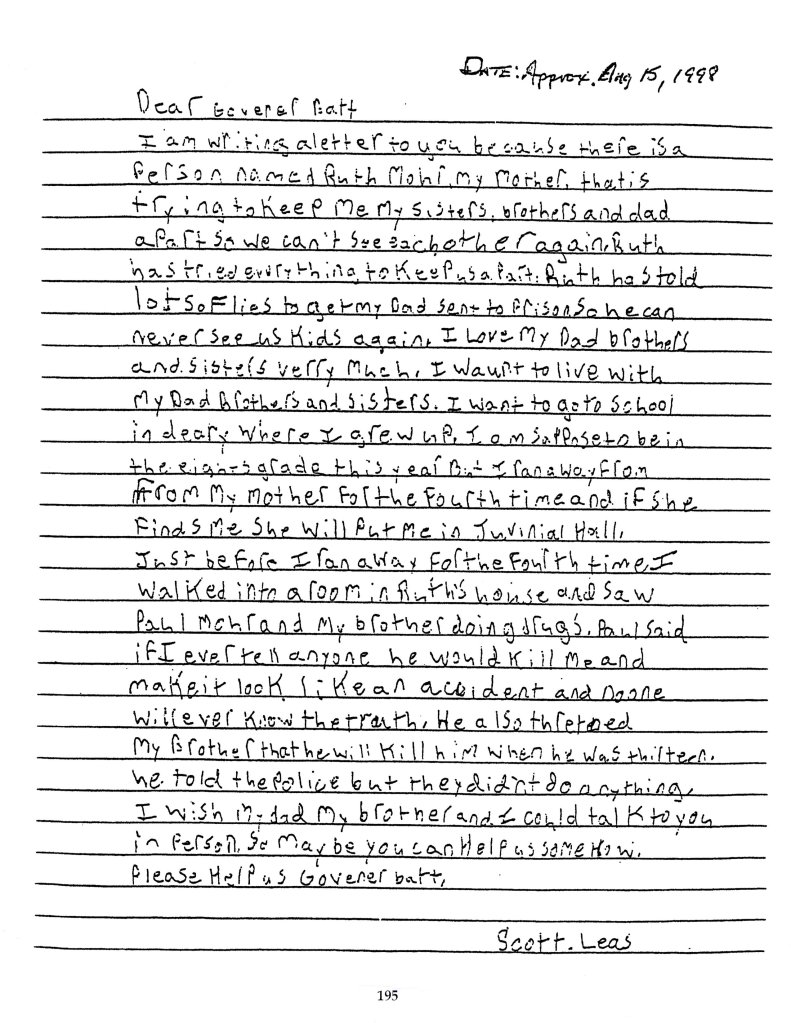 DATE: Approx. Aug 15, 1998
Dear Goverer Batt
I am writing a letter to you because there is a
Person named Ruth Mohr, my Mother, that is
trying to keep me my sisters, brothers and dad
apart so we can't see eachother again. Ruth
has tried everything to keep us apart. Ruth has told
lots of lies to get my Dad sent to Prison so he can
never see us kids again. I Love My Dad brothers
and sisters verry Much. I waunt to live with
My Dad Brothers and Sisters. I want to go to School
in deary Where I grew up. I am Sappose to be in
the eights grade this year But I ran away From
From My mother For the Fourth time and if she
Finds Me She Will Put Me in Juvinial Hall.
Just before I ran away For the Fourth time, I
Walked into a room in Ruth's house and saw
Paul Mohr and My brother doing drugs. Paul Said
if I ever tell anyone he would kill Me and
make it look like an accident and noone
will ever know the trath. He also thretened
My Brother that he will kill him when he was thirteen.
he told the Police but they didn't do anything.
I wish my dad My brother and I could talk to you
in Person. So May be you can Help us some How.
Please Help us Goverer batt.
Scott. Leas
195